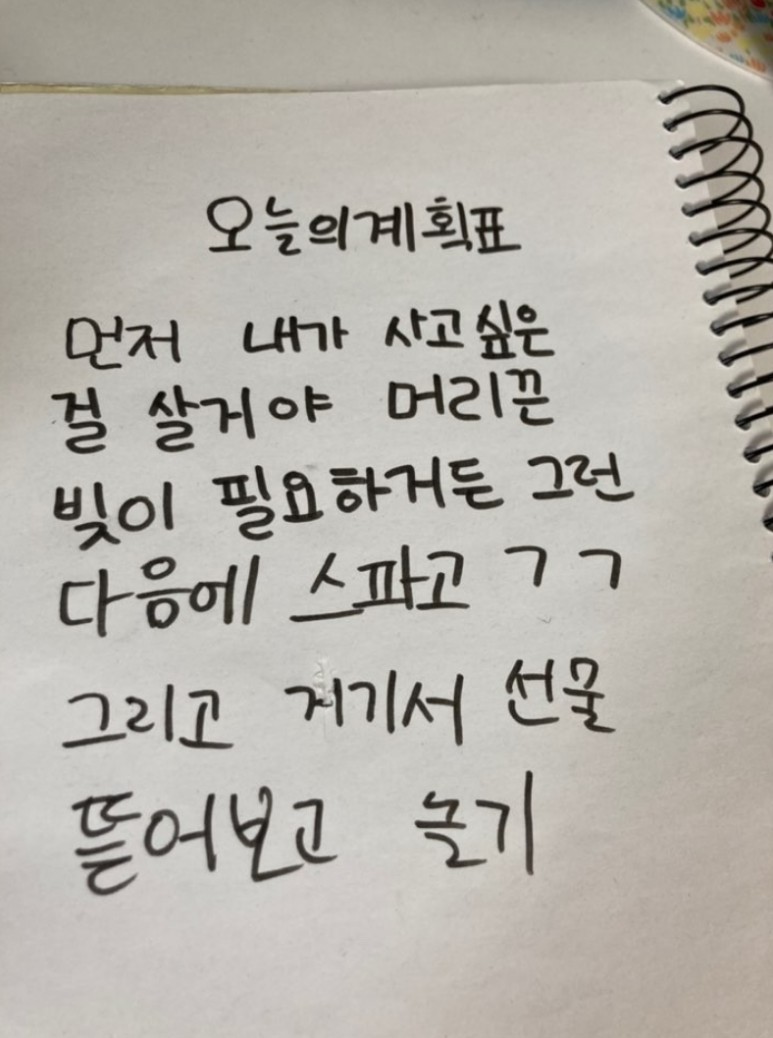 오늘의계획표
먼저 내가 사고싶은
걸 살거야 머리끈
빚이 필요하거든 그런
다음에 스파고 ㄱㄱ
그리고 거기서 선물
뜯어보고 놀기